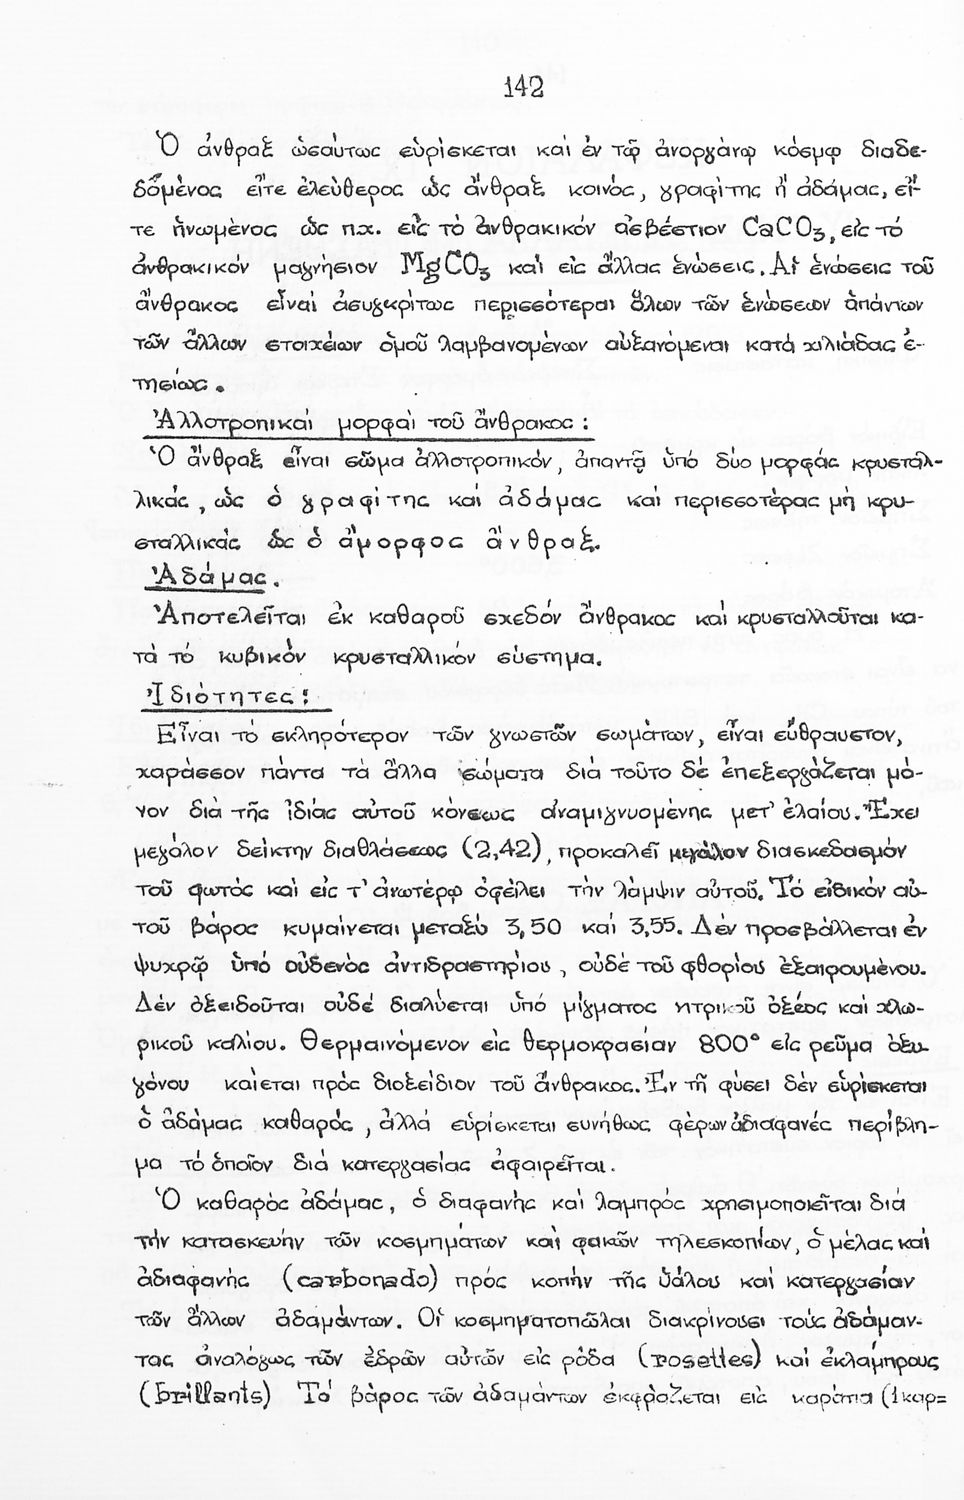 142
Ὁ ἄνθραξ ὡσαύτως εὑρίσκεται καὶ ἐν τῷ ἀνοργάνῳ κόσμῳ διαδε-
δομένος εἴτε ἐλεύθερος ὡς ἄνθραξ κοινὸς, γραφίτης ἢ ἀδάμας, εἴ-
τε ἡνωμένος ὡς π.χ. εἰς τὸ ἀνθρακικόν ἀσβέστιον CaCO₃, εἰς τὸ
ἀνθρακικόν μαγνήσιον MgCO₃ καὶ εἰς ἄλλας ἑνώσεις. Αἱ ἑνώσεις τοῦ
ἄνθρακος εἶναι ἀσυγκρίτως περισσότεραι ὅλων τῶν ἑνώσεων ἁπάντων
τῶν ἄλλων στοιχείων ὁμοῦ λαμβανομένων αὐξανόμεναι κατὰ χιλιάδας ἐ-
τησίως.
Ἀλλοτροπικαὶ μορφαὶ τοῦ ἄνθρακος:
Ὁ ἄνθραξ εἶναι σῶμα ἀλλοτροπικόν, ἀπαντᾷ ὑπὸ δύο μορφάς κρυσταλ-
λικάς, ὡς ὁ γραφίτης καὶ ἀδάμας καὶ περισσοτέρας μὴ κρυ-
σταλλικάς ὡς ὁ ἄμορφος ἄνθραξ.
Ἀδάμας.
Ἀποτελεῖται ἐκ καθαροῦ σχεδόν ἄνθρακος καὶ κρυσταλλοῦται κα-
τὰ τὸ κυβικόν κρυσταλλικόν σύστημα.
Ἰδιότητες:
Εἶναι τὸ σκληρότερον τῶν γνωστῶν σωμάτων, εἶναι εὔθραυστον,
χαράσσον πάντα τὰ ἄλλα σώματα διὰ τοῦτο δὲ ἐπεξεργάζεται μό-
νον διὰ τῆς ἰδίας αὐτοῦ κόνεως ἀναμιγνυομένης μετ' ἐλαίου. Ἔχει
μεγάλον δείκτην διαθλάσεως (2,42), προκαλεῖ μεγάλον διασκεδασμόν
τοῦ φωτός καὶ εἰς τ' ἀνωτέρω ὀφείλει τὴν λάμψιν αὐτοῦ. Τὸ εἰδικόν αὐ-
τοῦ βάρος κυμαίνεται μεταξύ 3,50 καὶ 3,55. Δέν προσβάλλεται ἐν
ψυχρῷ ὑπὸ οὐδενὸς ἀντιδραστηρίου, οὐδέ τοῦ φθορίου ἐξαιρουμένου.
Δέν ὀξειδοῦται οὐδέ διαλύεται ὑπὸ μίγματος νιτρικοῦ ὀξέος καὶ χλω-
ρικοῦ καλίου. Θερμαινόμενον εἰς θερμοκρασίαν 800° εἰς ρεῦμα ὀξυ-
γόνου καίεται πρὸς διοξείδιον τοῦ ἄνθρακος. Ἐν τῇ φύσει δέν εὑρίσκεται
ὁ ἀδάμας καθαρός, ἀλλά εὑρίσκεται συνήθως φέρων ἀδιαφανές περίβλη-
μα τὸ ὁποῖον διά κατεργασίας ἀφαιρεῖται.
Ὁ καθαρὸς ἀδάμας, ὁ διαφανής καὶ λαμπρός χρησιμοποιεῖται διὰ
τήν κατασκευήν τῶν κοσμημάτων καὶ φακῶν τηλεσκοπίων, ὁ μέλας καὶ
ἀδιαφανής (carbonado) πρὸς κοπήν τῆς ὑάλου καὶ κατεργασίαν
τῶν ἄλλων ἀδαμάντων. Οἱ κοσμηματοπῶλαι διακρίνουσι τοὺς ἀδάμαν-
τας ἀναλόγως τῶν ἑδρῶν αὐτῶν εἰς ρόδα (rosettes) καὶ ἐκλάμπρους
(brillants) Τὸ βάρος τῶν ἀδαμάντων ἐκφράζεται εἰς καράτια (1 καρ=